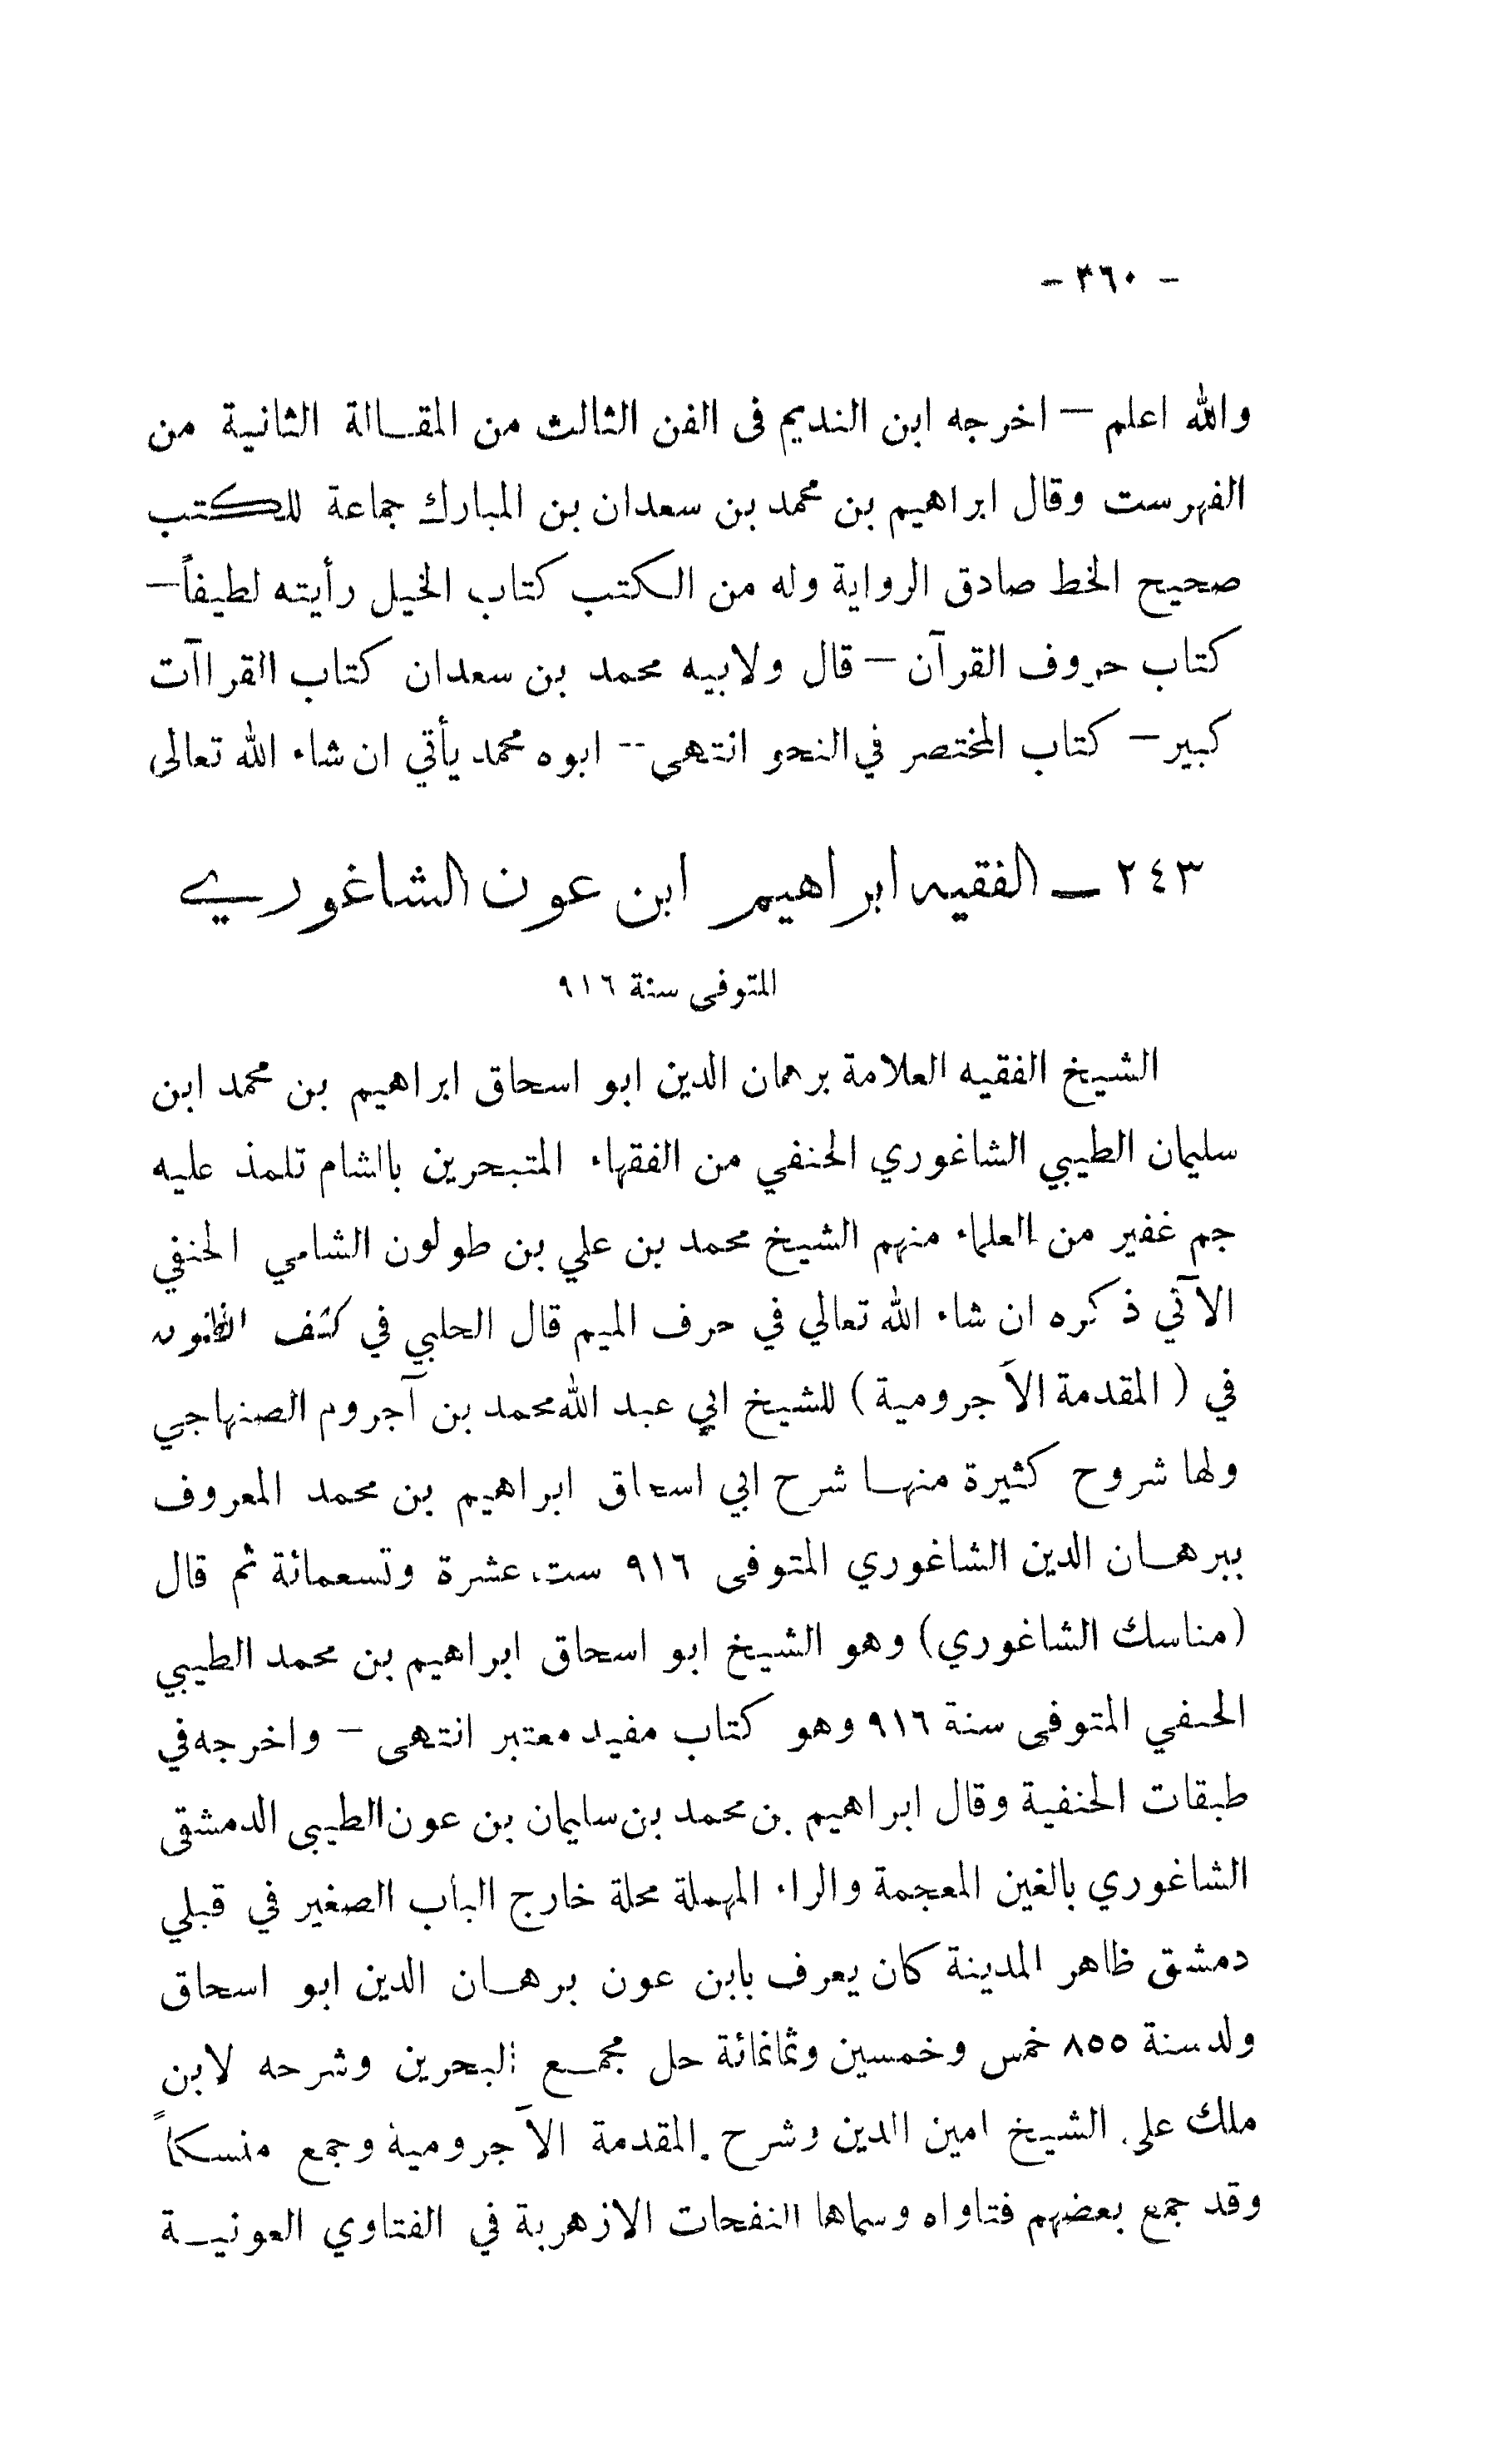 - ٣٦٠ -
والله اعلم — اخرجه ابن النديم فى الفن الثالث من المقالة الثانية من
الفهرست وقال ابراهيم بن محمد بن سعدان بن المبارك جماعة للكتب
صحيح الخط صادق الرواية وله من الكتب كتاب الخيل رأيته لطيفاً —
كتاب حروف القرآن — قال ولابيه محمد بن سعدان كتاب القراآت
كبير — كتاب المختصر في النحو انتهى -- ابوه محمد يأتي ان شاء الله تعالى
٢٤٣ — الفقيه ابراهيم ابن عون الشاغوري
المتوفى سنة ٩١٦
الشيخ الفقيه العلامة برهان الدين ابو اسحاق ابراهيم بن محمد ابن
سليمان الطيبي الشاغوري الحنفي من الفقهاء المتبحرين بالشام تلمذ عليه
جم غفير من العلماء منهم الشيخ محمد بن علي بن طولون الشامي الحنفي
الآتي ذكره ان شاء الله تعالي في حرف الميم قال الحلبي في كشف الظنون
في ( المقدمة الآجرومية ) للشيخ ابي عبد الله محمد بن آجروم الصنهاجي
ولها شروح كثيرة منها شرح ابي اسحاق ابراهيم بن محمد المعروف
ببرهان الدين الشاغوري المتوفى ٩١٦ ست عشرة وتسعمائة ثم قال
(مناسك الشاغوري) وهو الشيخ ابو اسحاق ابراهيم بن محمد الطيبي
الحنفي المتوفى سنة ٩١٦ وهو كتاب مفيد معتبر انتهى — واخرجه في
طبقات الحنفية وقال ابراهيم بن محمد بن سليمان بن عون الطيبى الدمشقى
الشاغوري بالغين المعجمة والراء المهملة محلة خارج الباب الصغير في قبلي
دمشق ظاهر المدينة كان يعرف بابن عون برهان الدين ابو اسحاق
ولد سنة ٨٥٥ خمس وخمسين وثمانمائة حل مجمع البحرين وشرحه لابن
ملك على الشيخ امين الدين وشرح المقدمة الآجرومية وجمع منسكاً
وقد جمع بعضهم فتاواه وسماها النفحات الازهرية في الفتاوي العونية